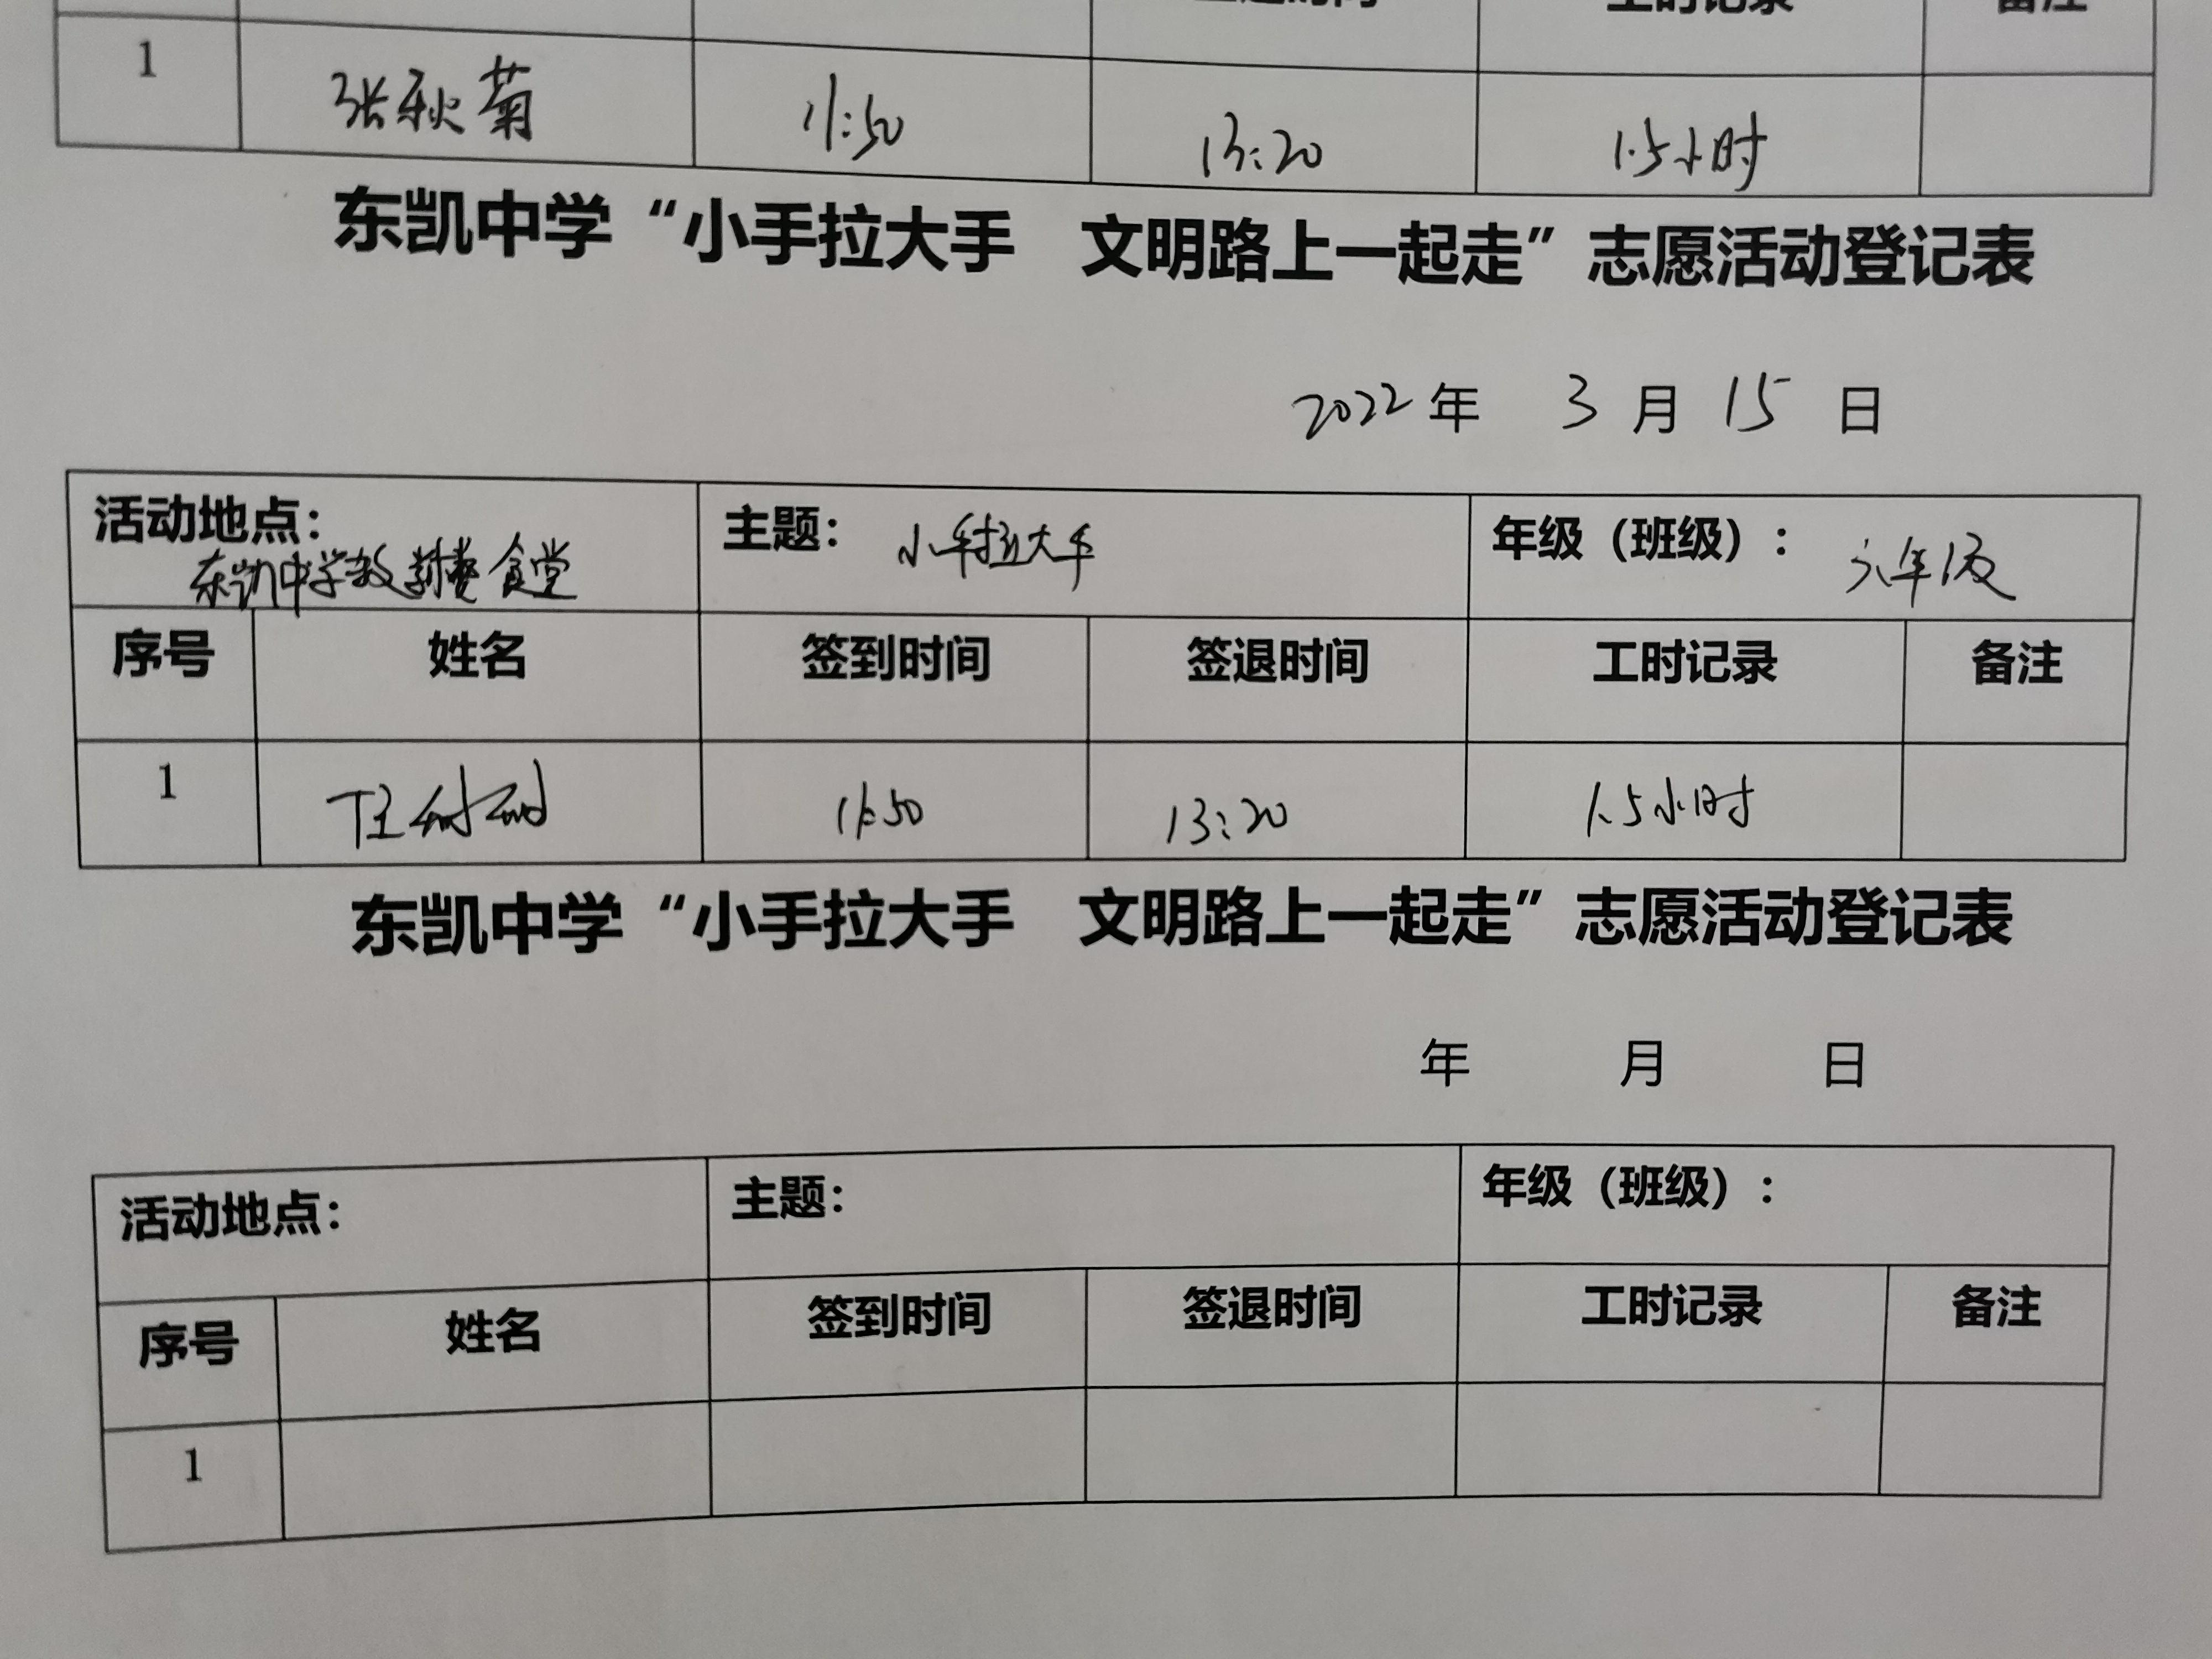 工时记录 备注
1 张秋菊 11:50 13:20 1.5小时
东凯中学“小手拉大手 文明路上一起走”志愿活动登记表
2022年 3月15日
活动地点： 主题：小手拉大手 年级（班级）：六年级
东凯中学教 食堂
序号 姓名 签到时间 签退时间 工时记录 备注
1 11:50 13:20 1.5小时
东凯中学“小手拉大手 文明路上一起走”志愿活动登记表
年 月 日
活动地点： 主题： 年级（班级）：
序号 姓名 签到时间 签退时间 工时记录 备注
1